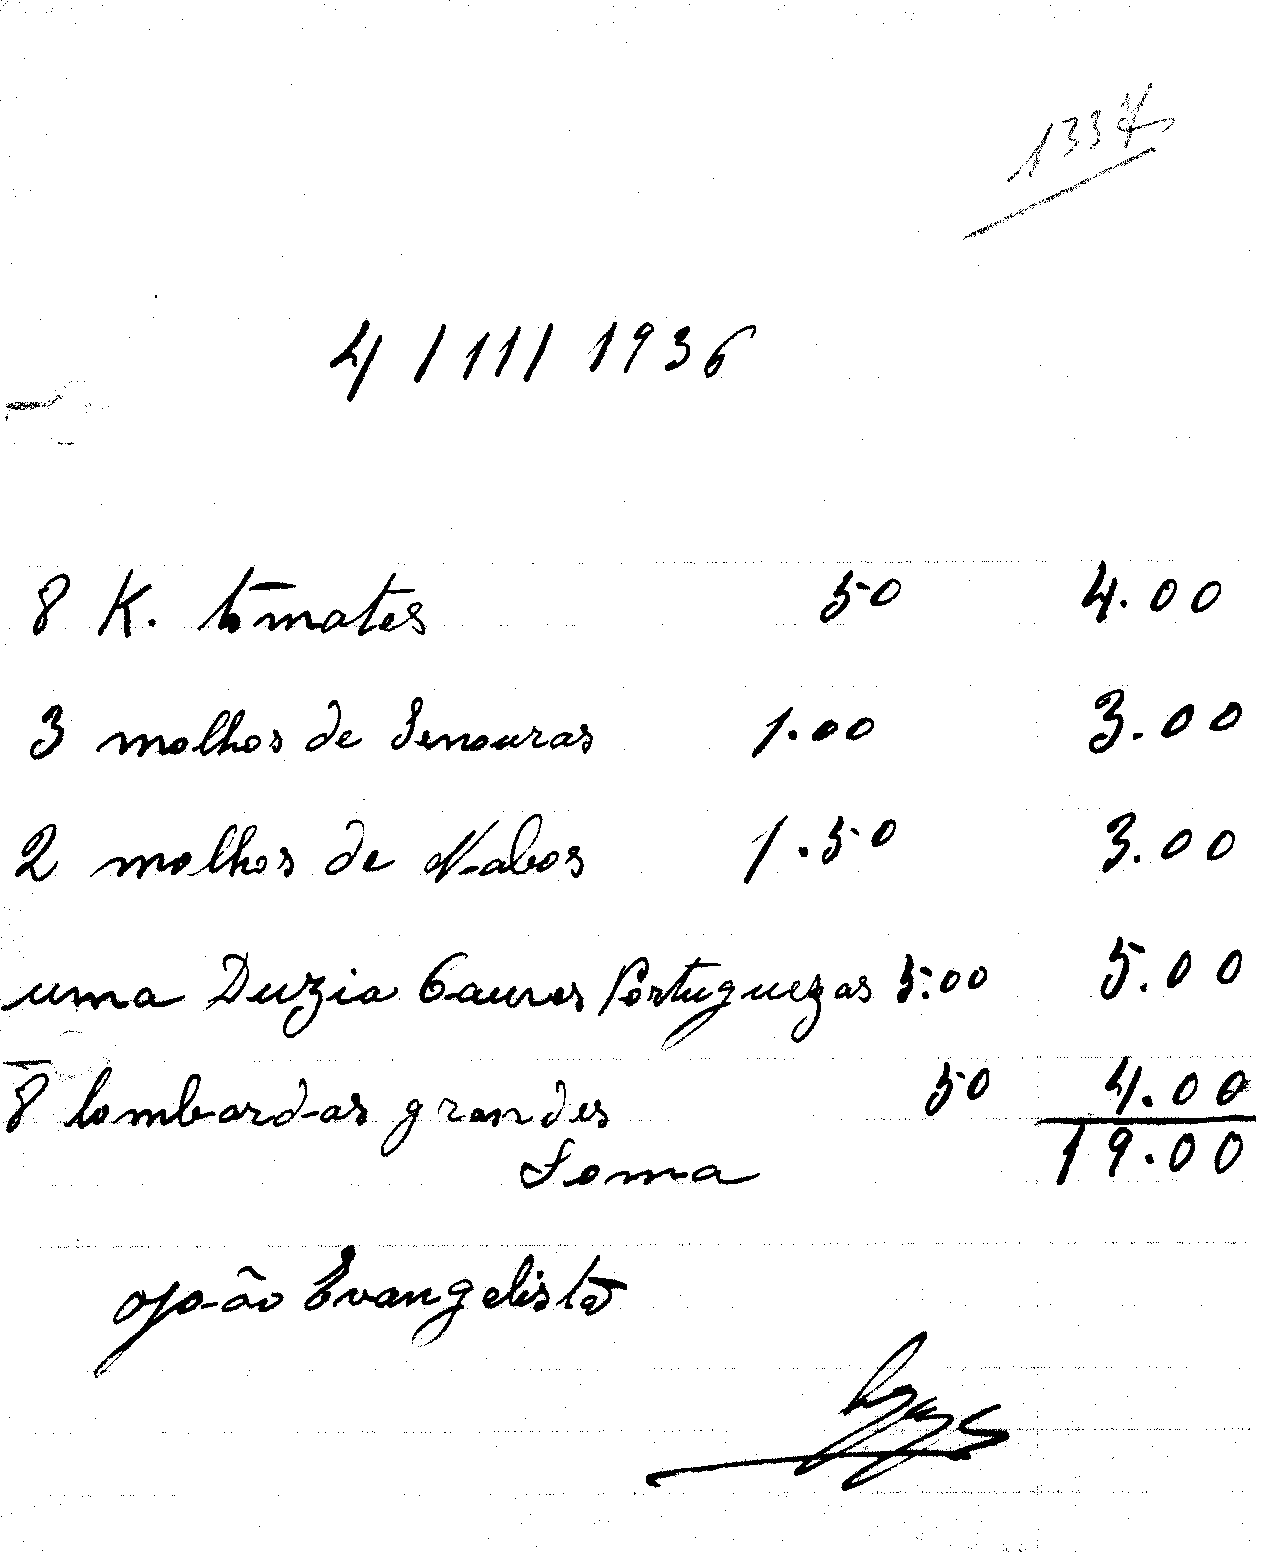 4/11/1936
8 K. tomates 50 4.00
3 molhos de Senouras 1.00 3.00
2 molhos de Nabos 1.50 3.00
uma Duzia Couves Portuguezas 5.00 5.00
8 lombardas grandes 50 4.00
Soma 19.00
João Evangelista